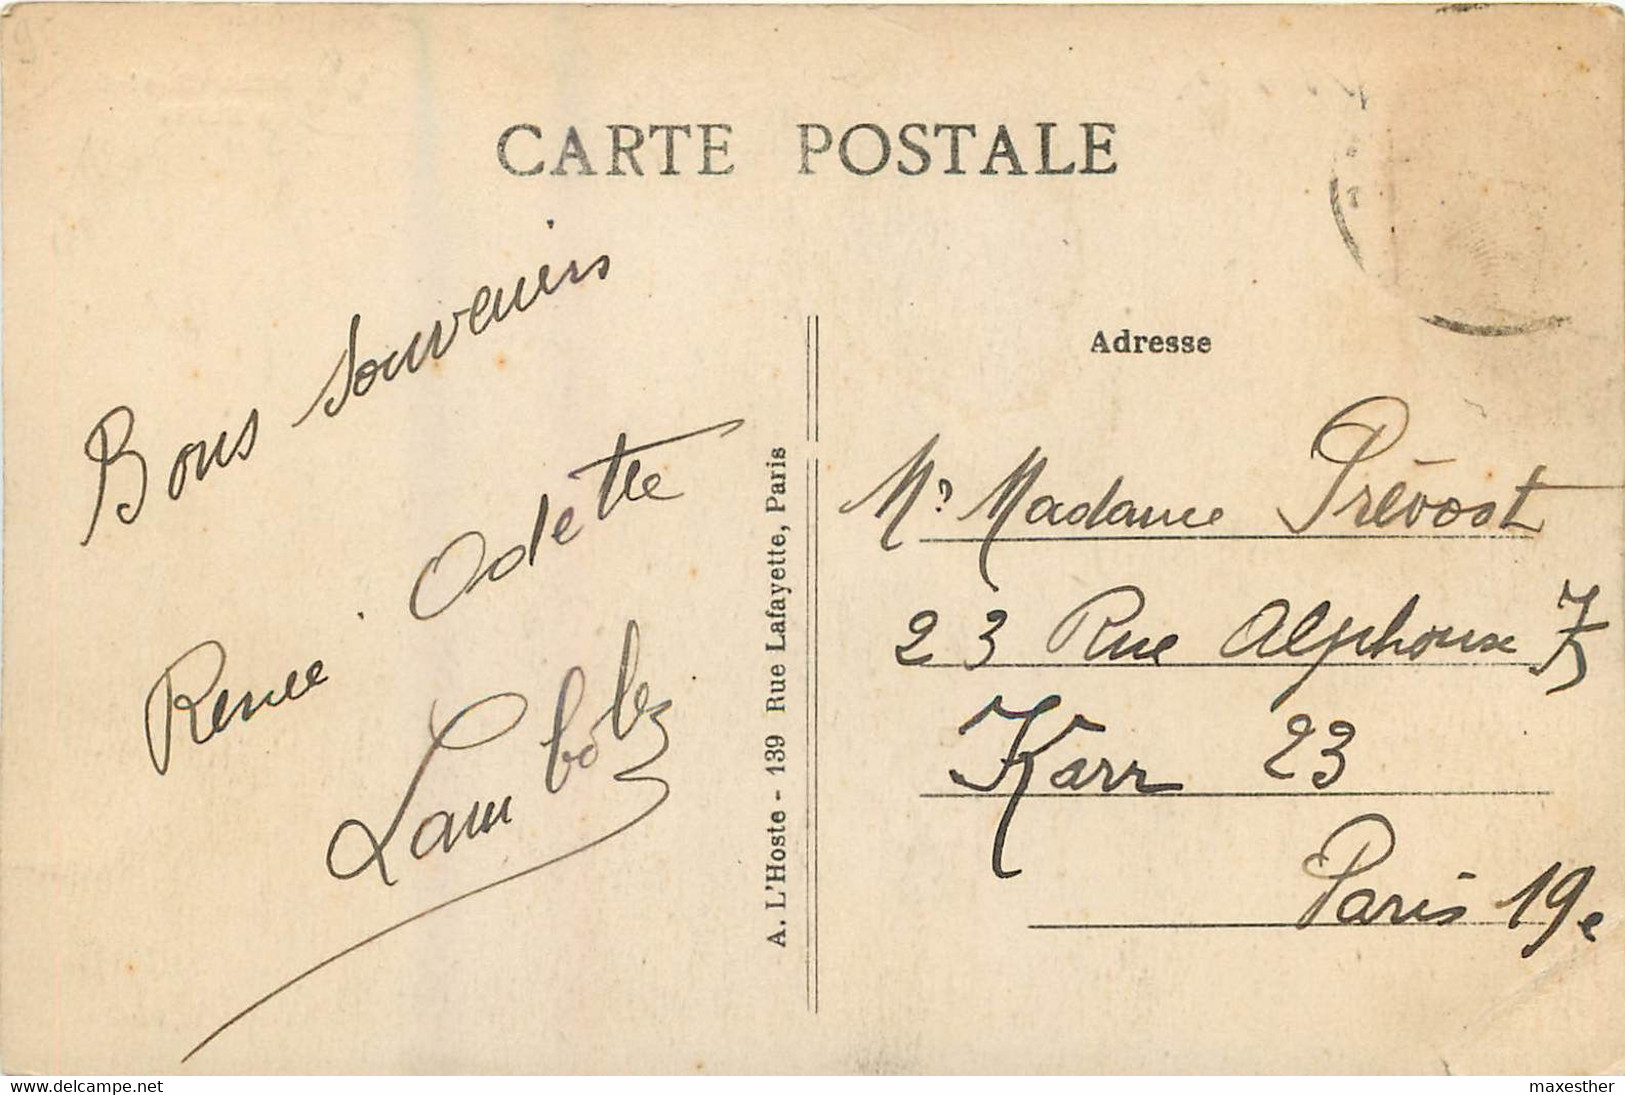 CARTE POSTALE
Bons souvenirs
Renée . Odette
A. L'Hoste - 139 Rue Lafayette, Paris
Adresse
Mr Madame Prévost
23 Rue Alphonse
Karr 23
Paris 19e
www.delcampe.net
maxesther